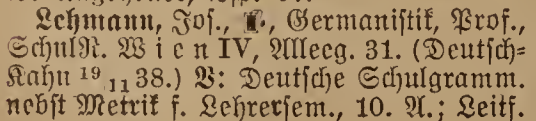 Lehmann, Jos., Germanistik, Prof.,
SchulR. Wien IV, Alleeg. 31. (Deutsch-
Kahn 19/11 38.) V: Deutsche Schulgramm.
nebst Metrik f. Lehrersem., 10. A.; Leitf.